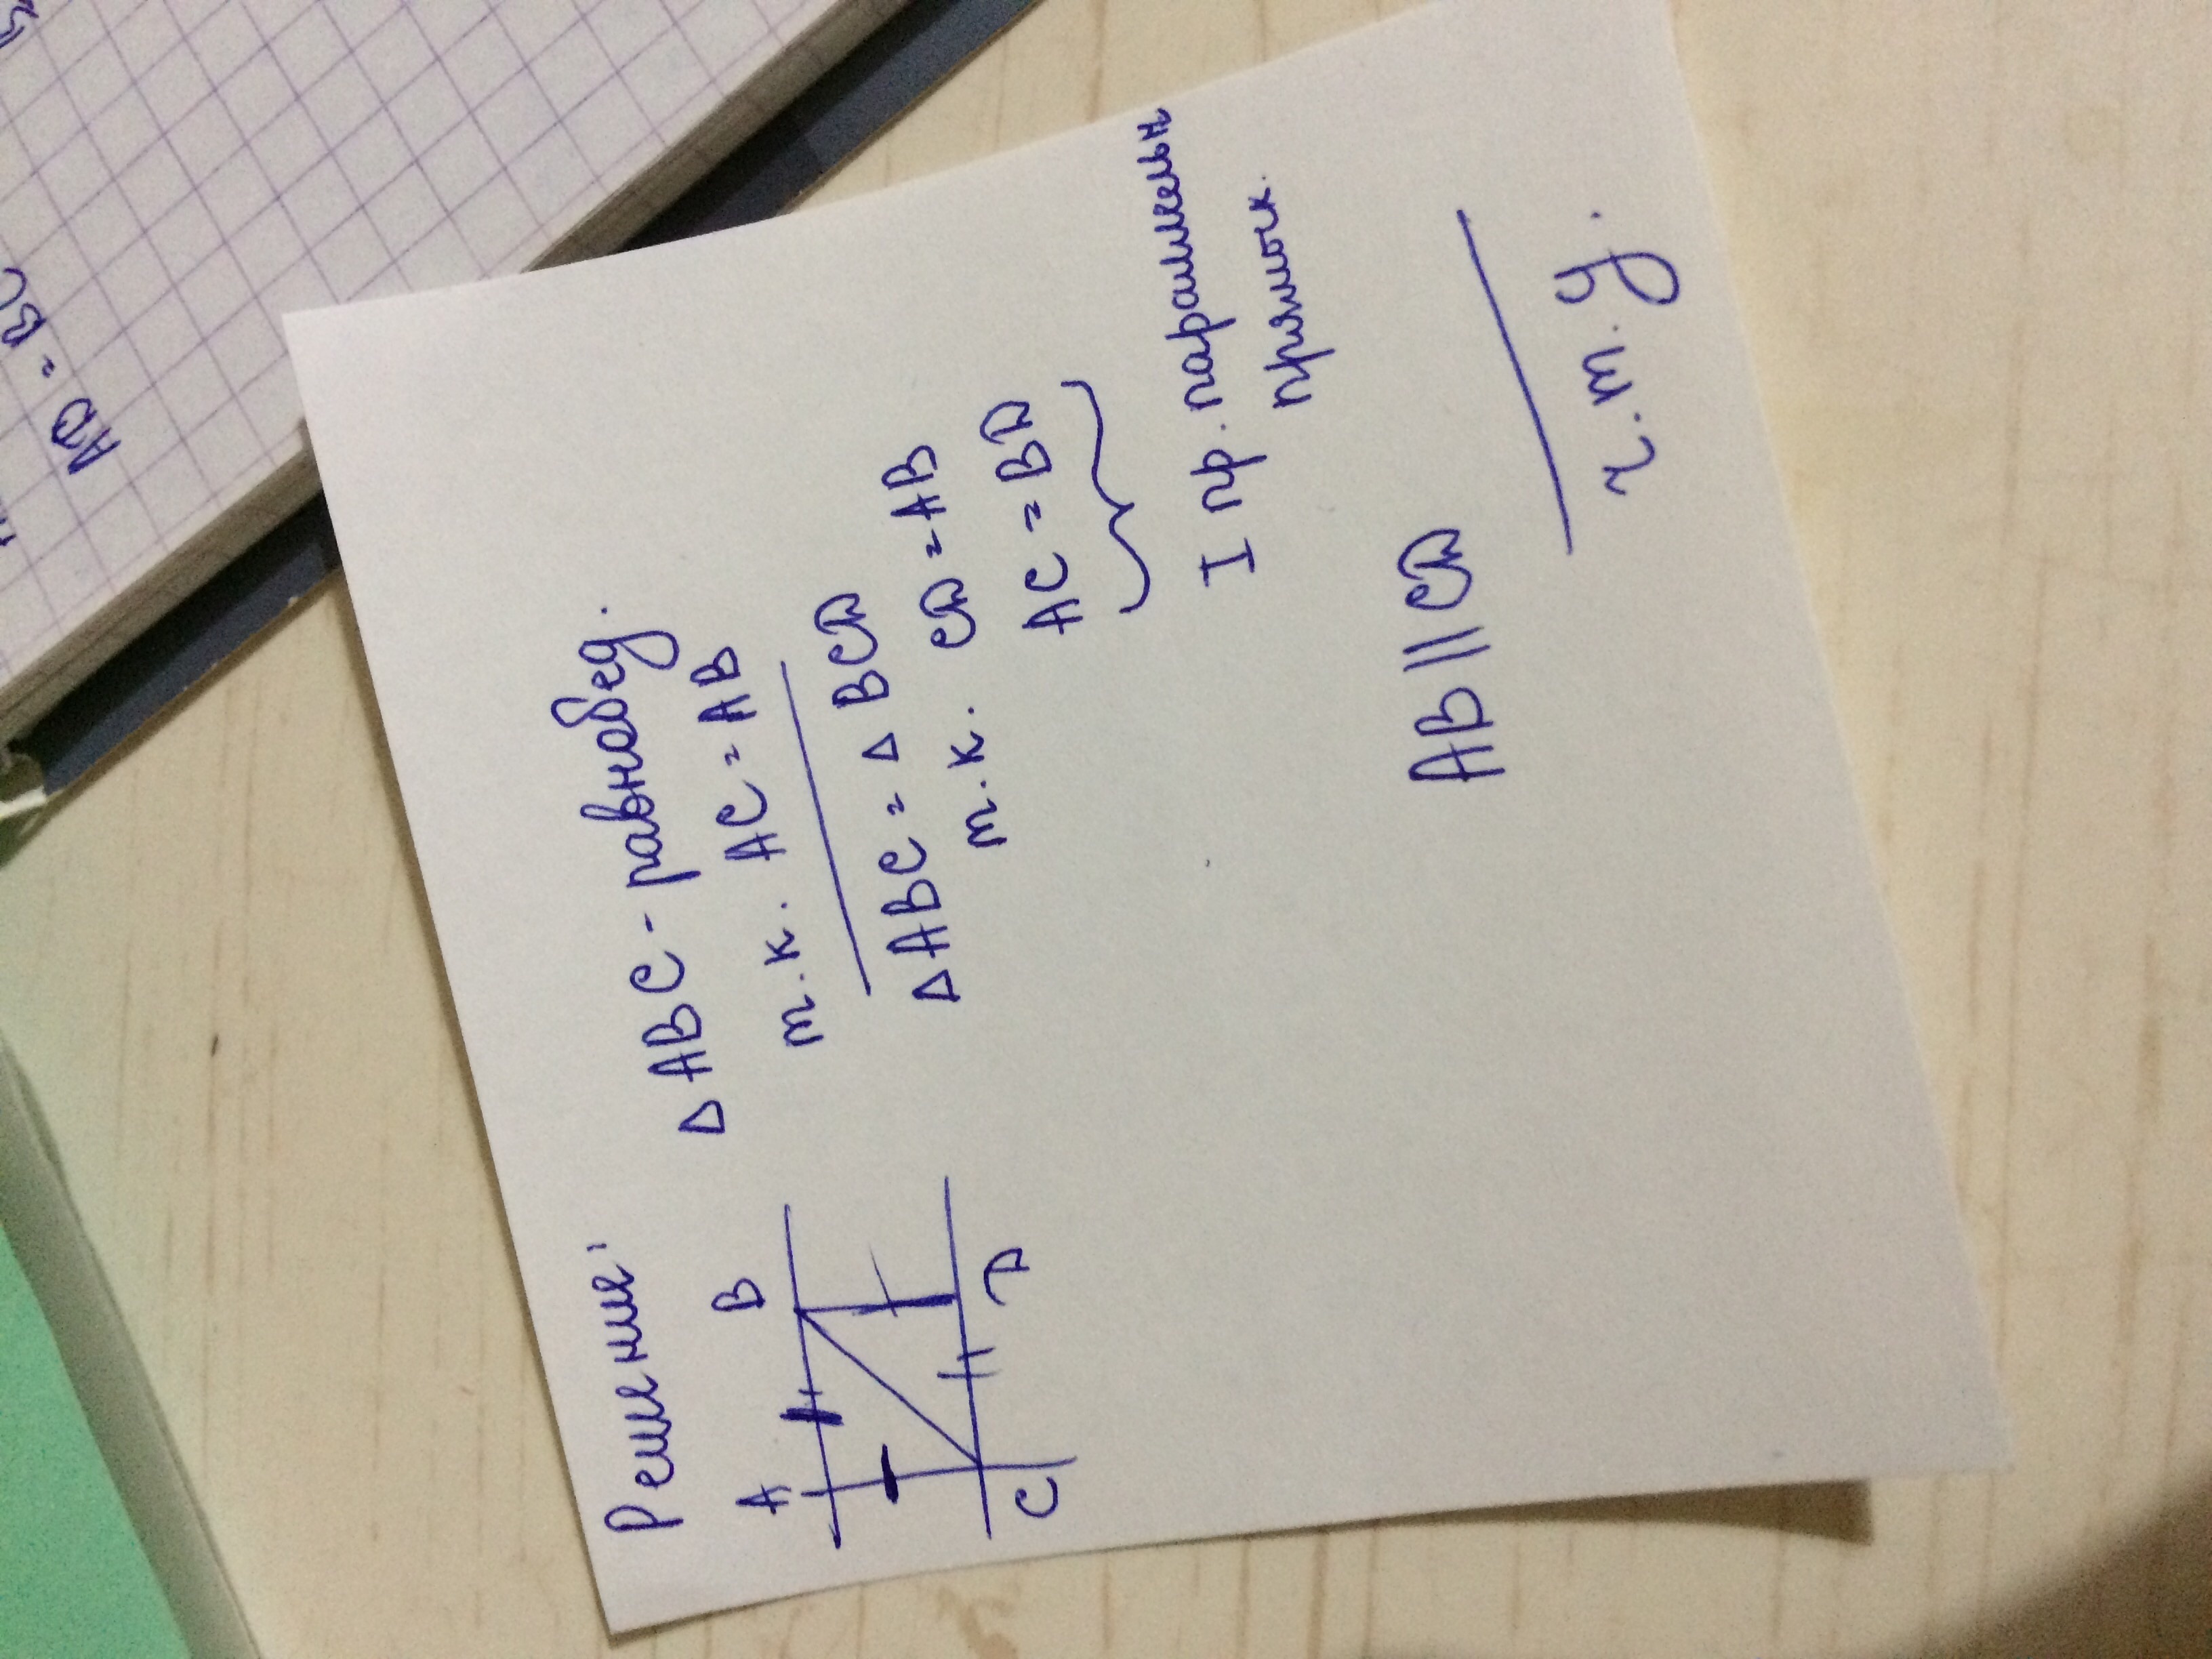 Решение:
A B
C D
Δ ABC - равнабед.
т.к. AC = AB
Δ ABC = Δ BCD
т.к. CD = AB
AC = BD
I пр. параллельн
прямых.
AB || CD
ч.т.д.
AD = BC